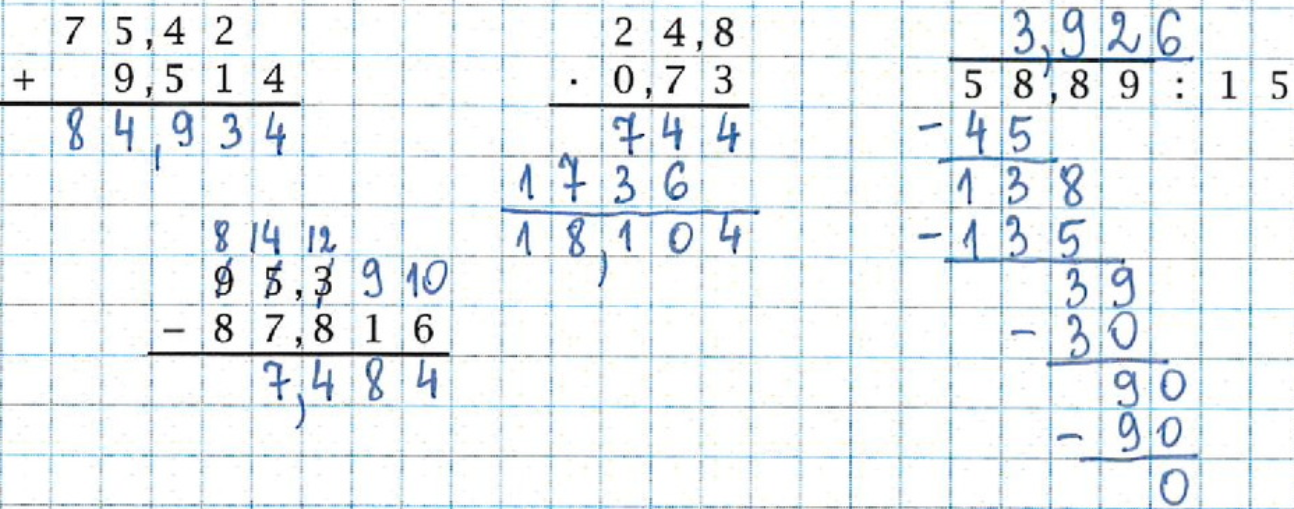 75,42
+ 9,514
84,934
8 14 12
95,3 9 10
- 87,816
7,484
24,8
· 0,73
744
1736
18,104
3,926
58,89 : 15
- 45
138
- 135
39
- 30
90
- 90
0